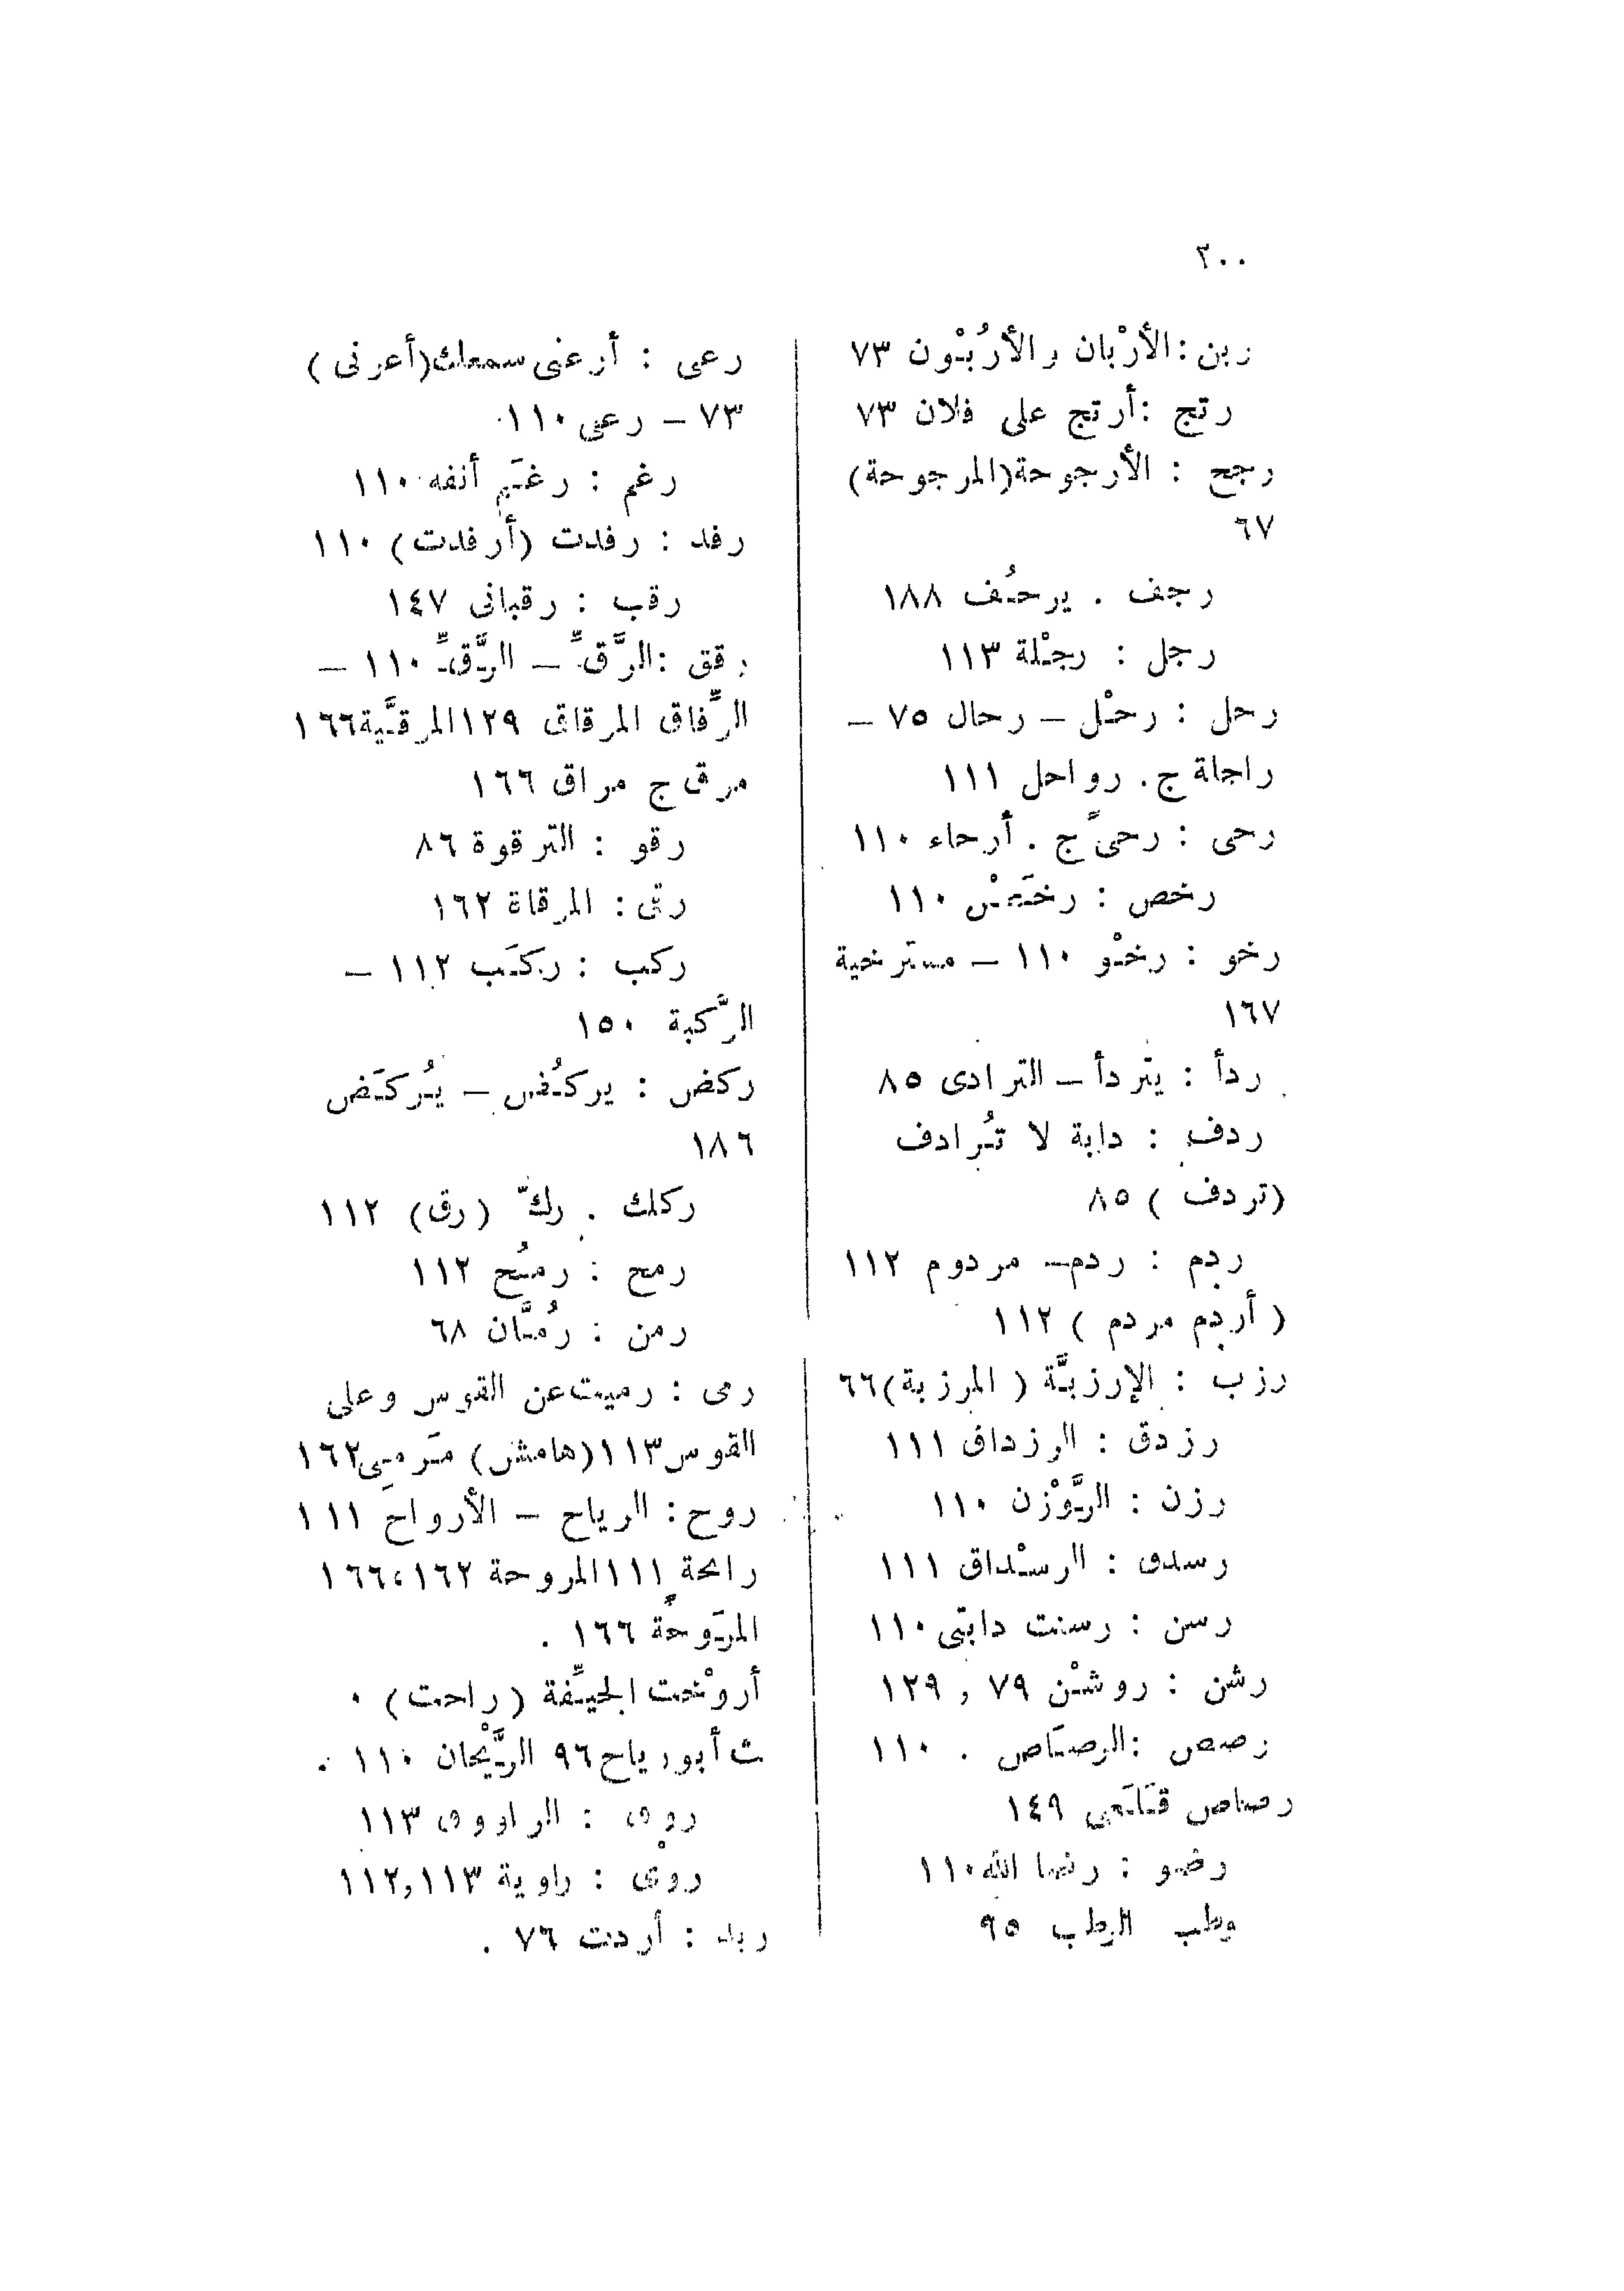 ٣٠٠
ربن : الأرْبان والأرُبْون ٧٣
رتج : أرتج على فلان ٧٣
رجح : الأرجوحة (المرجوحة)
٦٧
رجف . يرحُف ١٨٨
رجل : رجْلة ١١٣
رحل : رحْل – رحال ٧٥ –
راحلة ج . رواحل ١١١
رحى : رحىً ج . أرحاء ١١٠
رخص : رخَيْص ١١٠
رخو : رخْو ١١٠ – مسترخية
١٦٧
ردأ : يتردأ – الترادى ٨٥
ردف : دابة لا تُرادف
(تردف ) ٨٥
ردم : ردم – مردوم ١١٢
( أردم مردم ) ١١٢
رزب : الإرزبَّة ( المرزبة) ٦٦
رزدق : الرزداق ١١١
رزن : الرَّوْزن ١١٠
رسدق : الرسْداق ١١١
رسن : رسنت دابتى ١١٠
رشن : روشْن ٧٩ , ١٢٩
رصص : الرصَاص . ١١٠
رصاص قَلَعى ١٤٩
رضو : رضا الله ١١٠
وطب الرطب ٩٥
رعى : أرعنى سمعك (أعرنى )
٧٣ – رعى ١١٠
رغم : رغَم أنفه ١١٠
رفد : رفدت (أرفدت) ١١٠
رقب : رقبانى ١٤٧
رقق : الرَّقِّ – الرَّقِّ ١١٠ –
الرِّقاق المرقاق ١٢٩ المرقَّية ١٦٦
مرق ج مراق ١٦٦
رقو : الترقوة ٨٦
رقى : المرقاة ١٦٢
ركب : ركَب ١١٢ –
الرَّكبة ١٥٠
ركض : يركُض – يُركَض
١٨٦
ركك . ركّ (رق) ١١٢
رمح : رمُح ١١٢
رمن : رُمَّان ٦٨
رمى : رميت عن القوس وعلى
القوس ١١٣ (هامش) مَرمى ١٦٢
روح : الرياح – الأرواح ١١١
رائحة ١١١ المروحة ١٦٢، ١٦٦
المرَوحَة ١٦٦ .
أروْحت الجيِّفة (راحت) ٠
ث أبو رياح ٩٦ الرَّيْحان ١١٠ .
روق : الراووق ١١٣
روى : راوية ١١٣ , ١١٢
ريد : أردت ٧٦ .